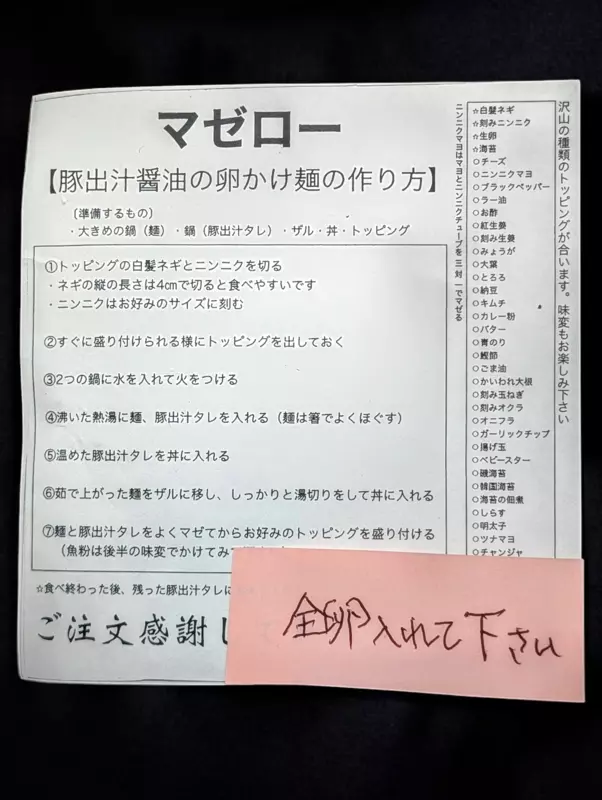 マゼロー
【豚出汁醤油の卵かけ麺の作り方】
（準備するもの）
・大きめの鍋（麺）・鍋（豚出汁タレ）・ザル・丼・トッピング
①トッピングの白髪ネギとニンニクを切る
・ネギの縦の長さは4㎝で切ると食べやすいです
・ニンニクはお好みのサイズに刻む
②すぐに盛り付けられる様にトッピングを出しておく
③2つの鍋に水を入れて火をつける
④沸いた熱湯に麺、豚出汁タレを入れる（麺は箸でよくほぐす）
⑤温めた豚出汁タレを丼に入れる
⑥茹で上がった麺をザルに移し、しっかりと湯切りをして丼に入れる
⑦麺と豚出汁タレをよくマゼてからお好みのトッピングを盛り付ける
（魚粉は後半の味変でかけてみて
☆食べ終わった後、残った豚出汁タレに
ご注文感謝し
全卵入れて下さい
沢山の種類のトッピングが合います。味変もお楽しみ下さい
☆白髪ネギ
☆刻みニンニク
☆生卵
☆海苔
○チーズ
○ニンニクマヨ
○ブラックペッパー
○ラー油
○お酢
○紅生姜
○刻み生姜
○みょうが
○大葉
○とろろ
○納豆
○キムチ
○カレー粉
○バター
○青のり
○鰹節
○ごま油
○かいわれ大根
○刻み玉ねぎ
○刻みオクラ
○オニフラ
○ガーリックチップ
○揚げ玉
○ベビースター
○磯海苔
○韓国海苔
○海苔の佃煮
○しらす
○明太子
○ツナマヨ
○チャンジャ
ニンニクマヨはマヨとニンニクチューブを三対一でマゼる